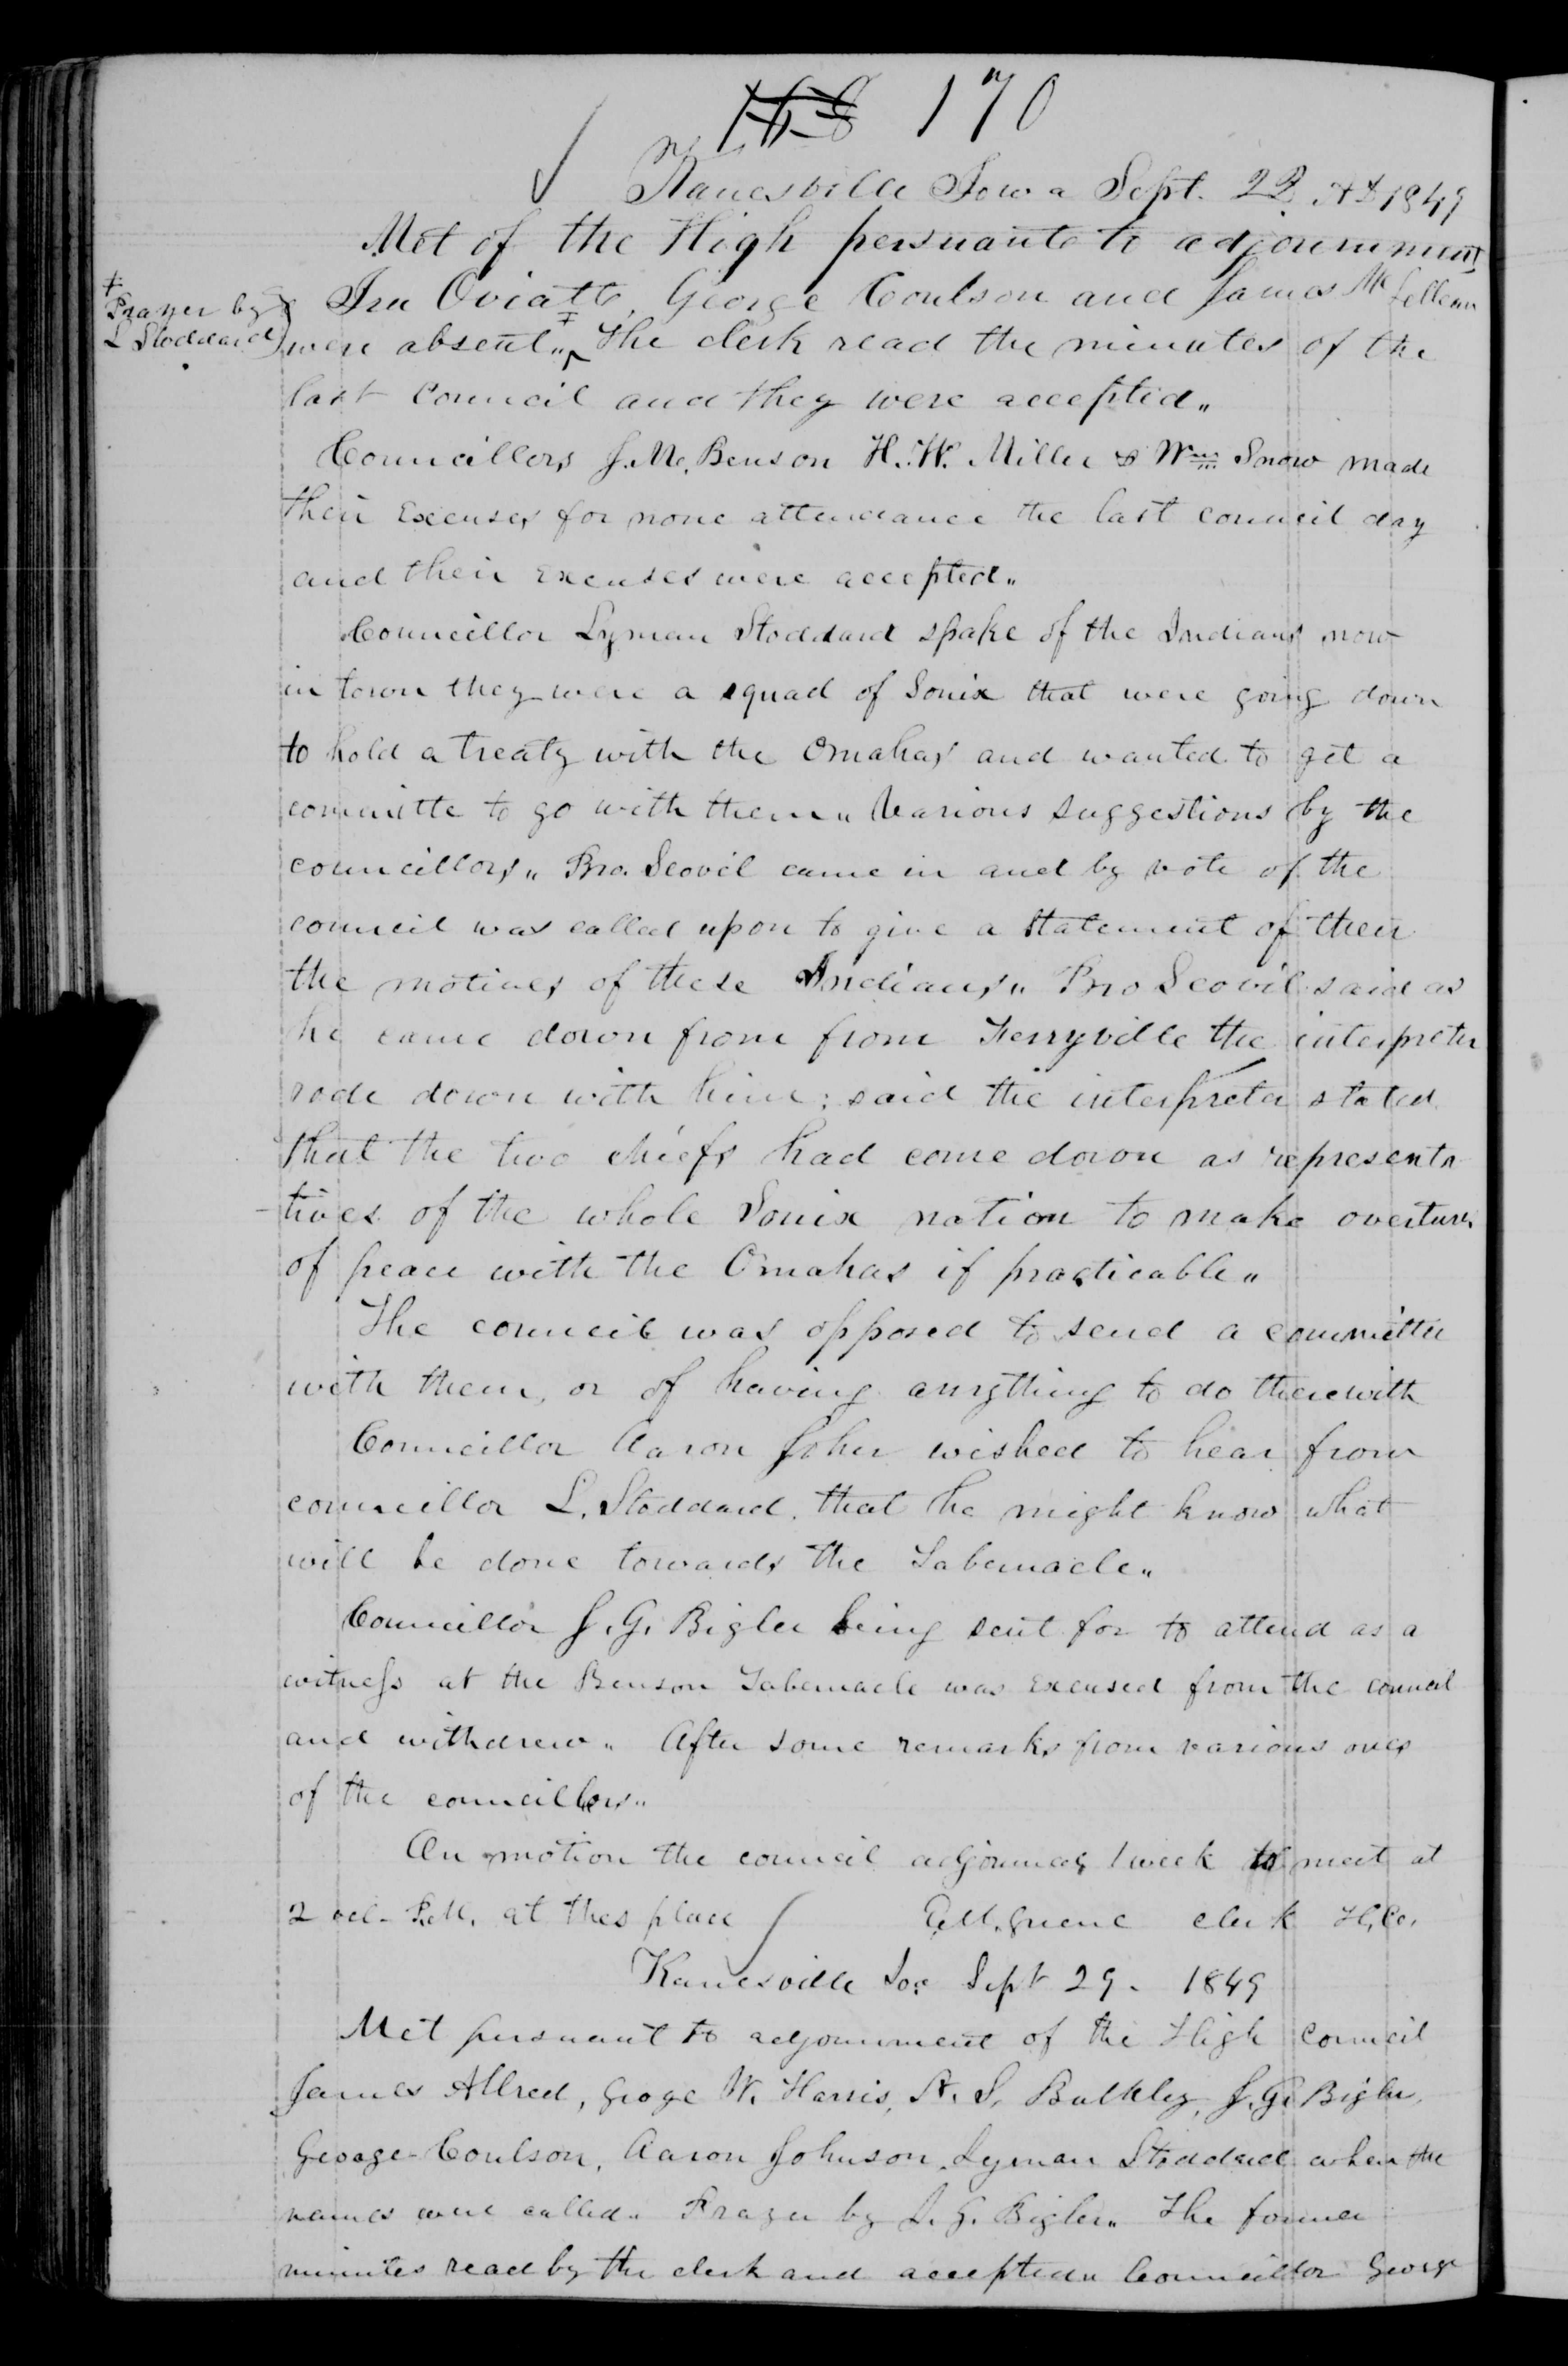 170
Kanesville Iowa Sept. 22 AD 1849
Met of the High persuante to adjournment
‡ Prayer by L Stoddard
Ira Oviatt, George Coulson and James McLellean
were absent„ ‡ The clerk read the minutes of the
last Council and they were accepted„
Councillors J. M. Benson H. W. Miller & Wm Snow made
their Excuses for none attendance the last council day
and their excuses were accepted„
Councillor Lyman Stoddard spake of the Indians now
in town they were a squad of Souix that were going down
to hold a treaty with the Omahas and wanted to get a
committe to go with them„ Various suggestions by the
councillors„ Bro. Scovil came in and by vote of the
council was called upon to give a statement of their
the motives of these Indians„ Bro Scovil said as
he came down from from Ferryville the interpreter
rode down with him; said the interpreter stated
that the two chiefs had come down as representa
-tives of the whole Souix nation to make overtures
of peace with the Omahas if practicable„
The council was opposed to send a committee
with them, or of having anything to do therewith
Councillor Aaron Johns wished to hear from
councillor L. Stoddard. that he might know what
will be done towards the Tabernacle„
Councillor J. G. Bigler being sent for to attend as a
witness at the Benson Tabernacle was excused from the council
and withdrew„ After some remarks from various ones
of the councillors„
On motion the council adjourned 1 week to meet at
2 ocl- P.M. at this place E. M. Greene clerk H. Co.
Kanesville Io: Sept 29. 1849
Met pursuant to adjournment of the High Council
James Allred, Groge W. Harris, N. S. Bulkley, J. G. Bigler,
George Coulson, Aaron Johnson, Lyman Stoddard when the
names were called„ Prayer by J. G. Bigler„ The former
minutes read by the clerk and accepted„ Councillor George